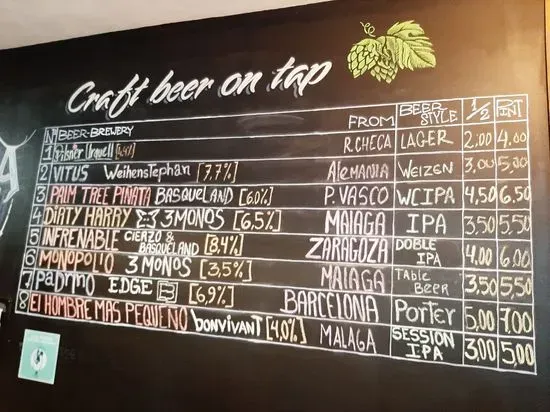 Craft beer on tap
Nº BEER-BREWERY FROM BEER STYLE 1/2 PINT
1 Pilsner Urquell [4,4%] R.CHECA LAGER 2,00 4,00
2 VITUS Weihenstephan [7.7%] ALEMANIA WEIZEN 3,00 5,00
3 PALM TREE PIÑATA BASQUELAND [6.0%] P. VASCO WCIPA 4,50 6,50
4 DIATY HARAY 3 MONOS [6,5%] MALAGA IPA 3,50 5,50
5 INFRENABLE CIERZO & BASQUELAND [8.4%] ZARAGOZA DOBLE IPA 4,00 6,00
6 MONOPOL'O 3 MONOS [3,5%] MALAGA Table BEER 3,50 5,50
7 PADRINO EDGE [6,9%] BARCELONA Porter 5,00 7,00
8 El HOMBRE MAS PEQUEÑO bonvivant [4,0%] MALAGA SESSION IPA 3,00 5,00